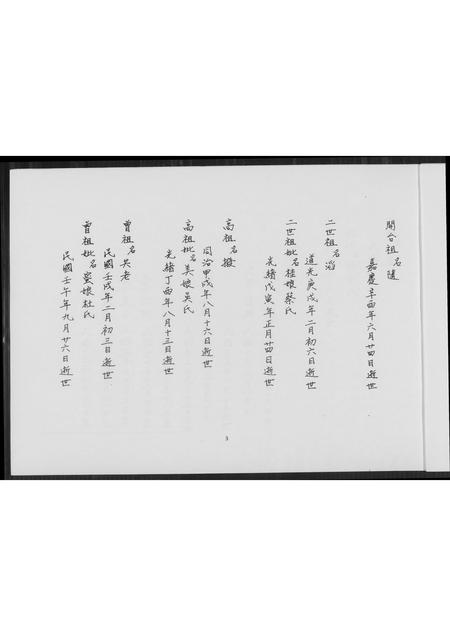 開台祖名隨
嘉慶辛酉年六月廿四日逝世
二世祖名滔
道光庚戌年二月初六日逝世
二世祖妣名桂娘蔡氏
光緒戊寅年正月廿四日逝世
高祖名撥
同治甲戌年八月十六日逝世
高祖妣名美娘吳氏
光緒丁酉年八月十三日逝世
曾祖名矢老
民國壬戌年二月初三日逝世
曾祖妣名蜜娘杜氏
民國壬午年九月廿六日逝世
3